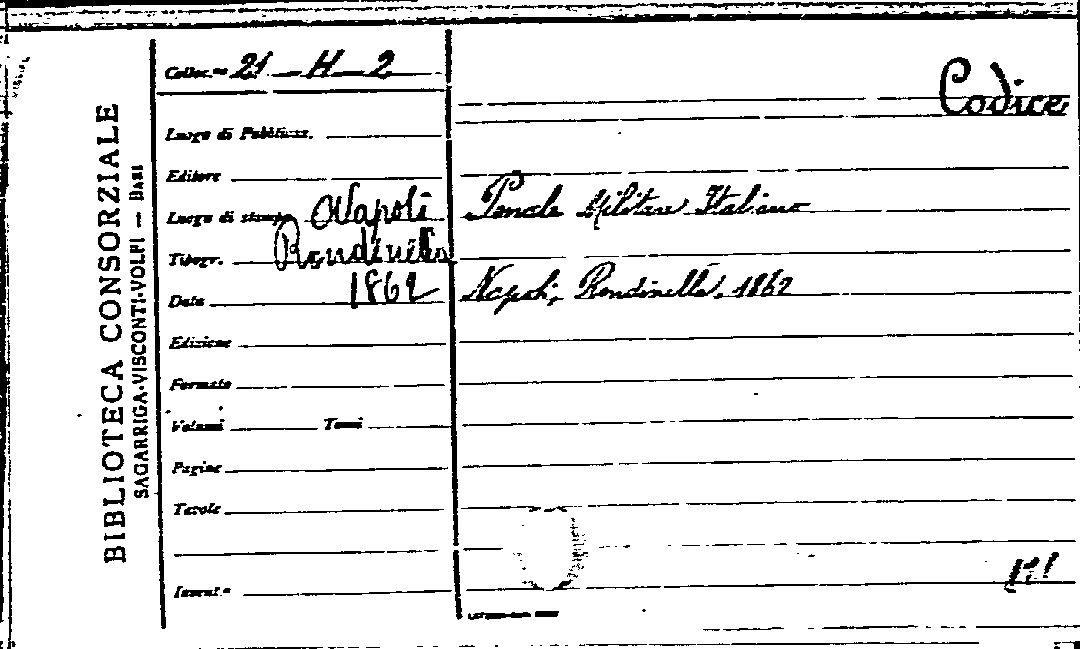 BIBLIOTECA CONSORZIALE
SAGARRIGA-VISCONTI-VOLPI — BARI
Colloc.ne 21 — H — 2
Codice
Luogo di Pubblicaz.
Editore
Luogo di stampa Napoli
Penale Militare Italiano
Tipogr. Rondinella
Data 1862
Napoli, Rondinella, 1862
Edizione
Formato
Volumi Tomi
Pagine
Tavole
Invent.o